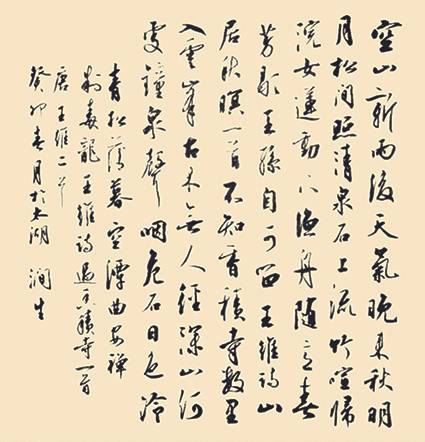 空山新雨後天氣晚來秋明
月松間照清泉石上流竹喧歸
浣女蓮動下漁舟隨意春
芳歇王孫自可留王維詩山
居秋暝一首不知香積寺數里
入雲峯古木無人徑深山何
處鐘泉聲咽危石日色冷
青松薄暮空潭曲安禪
制毒龍王維詩過香積寺一首
唐王維二首
癸卯春月於太湖 潤生